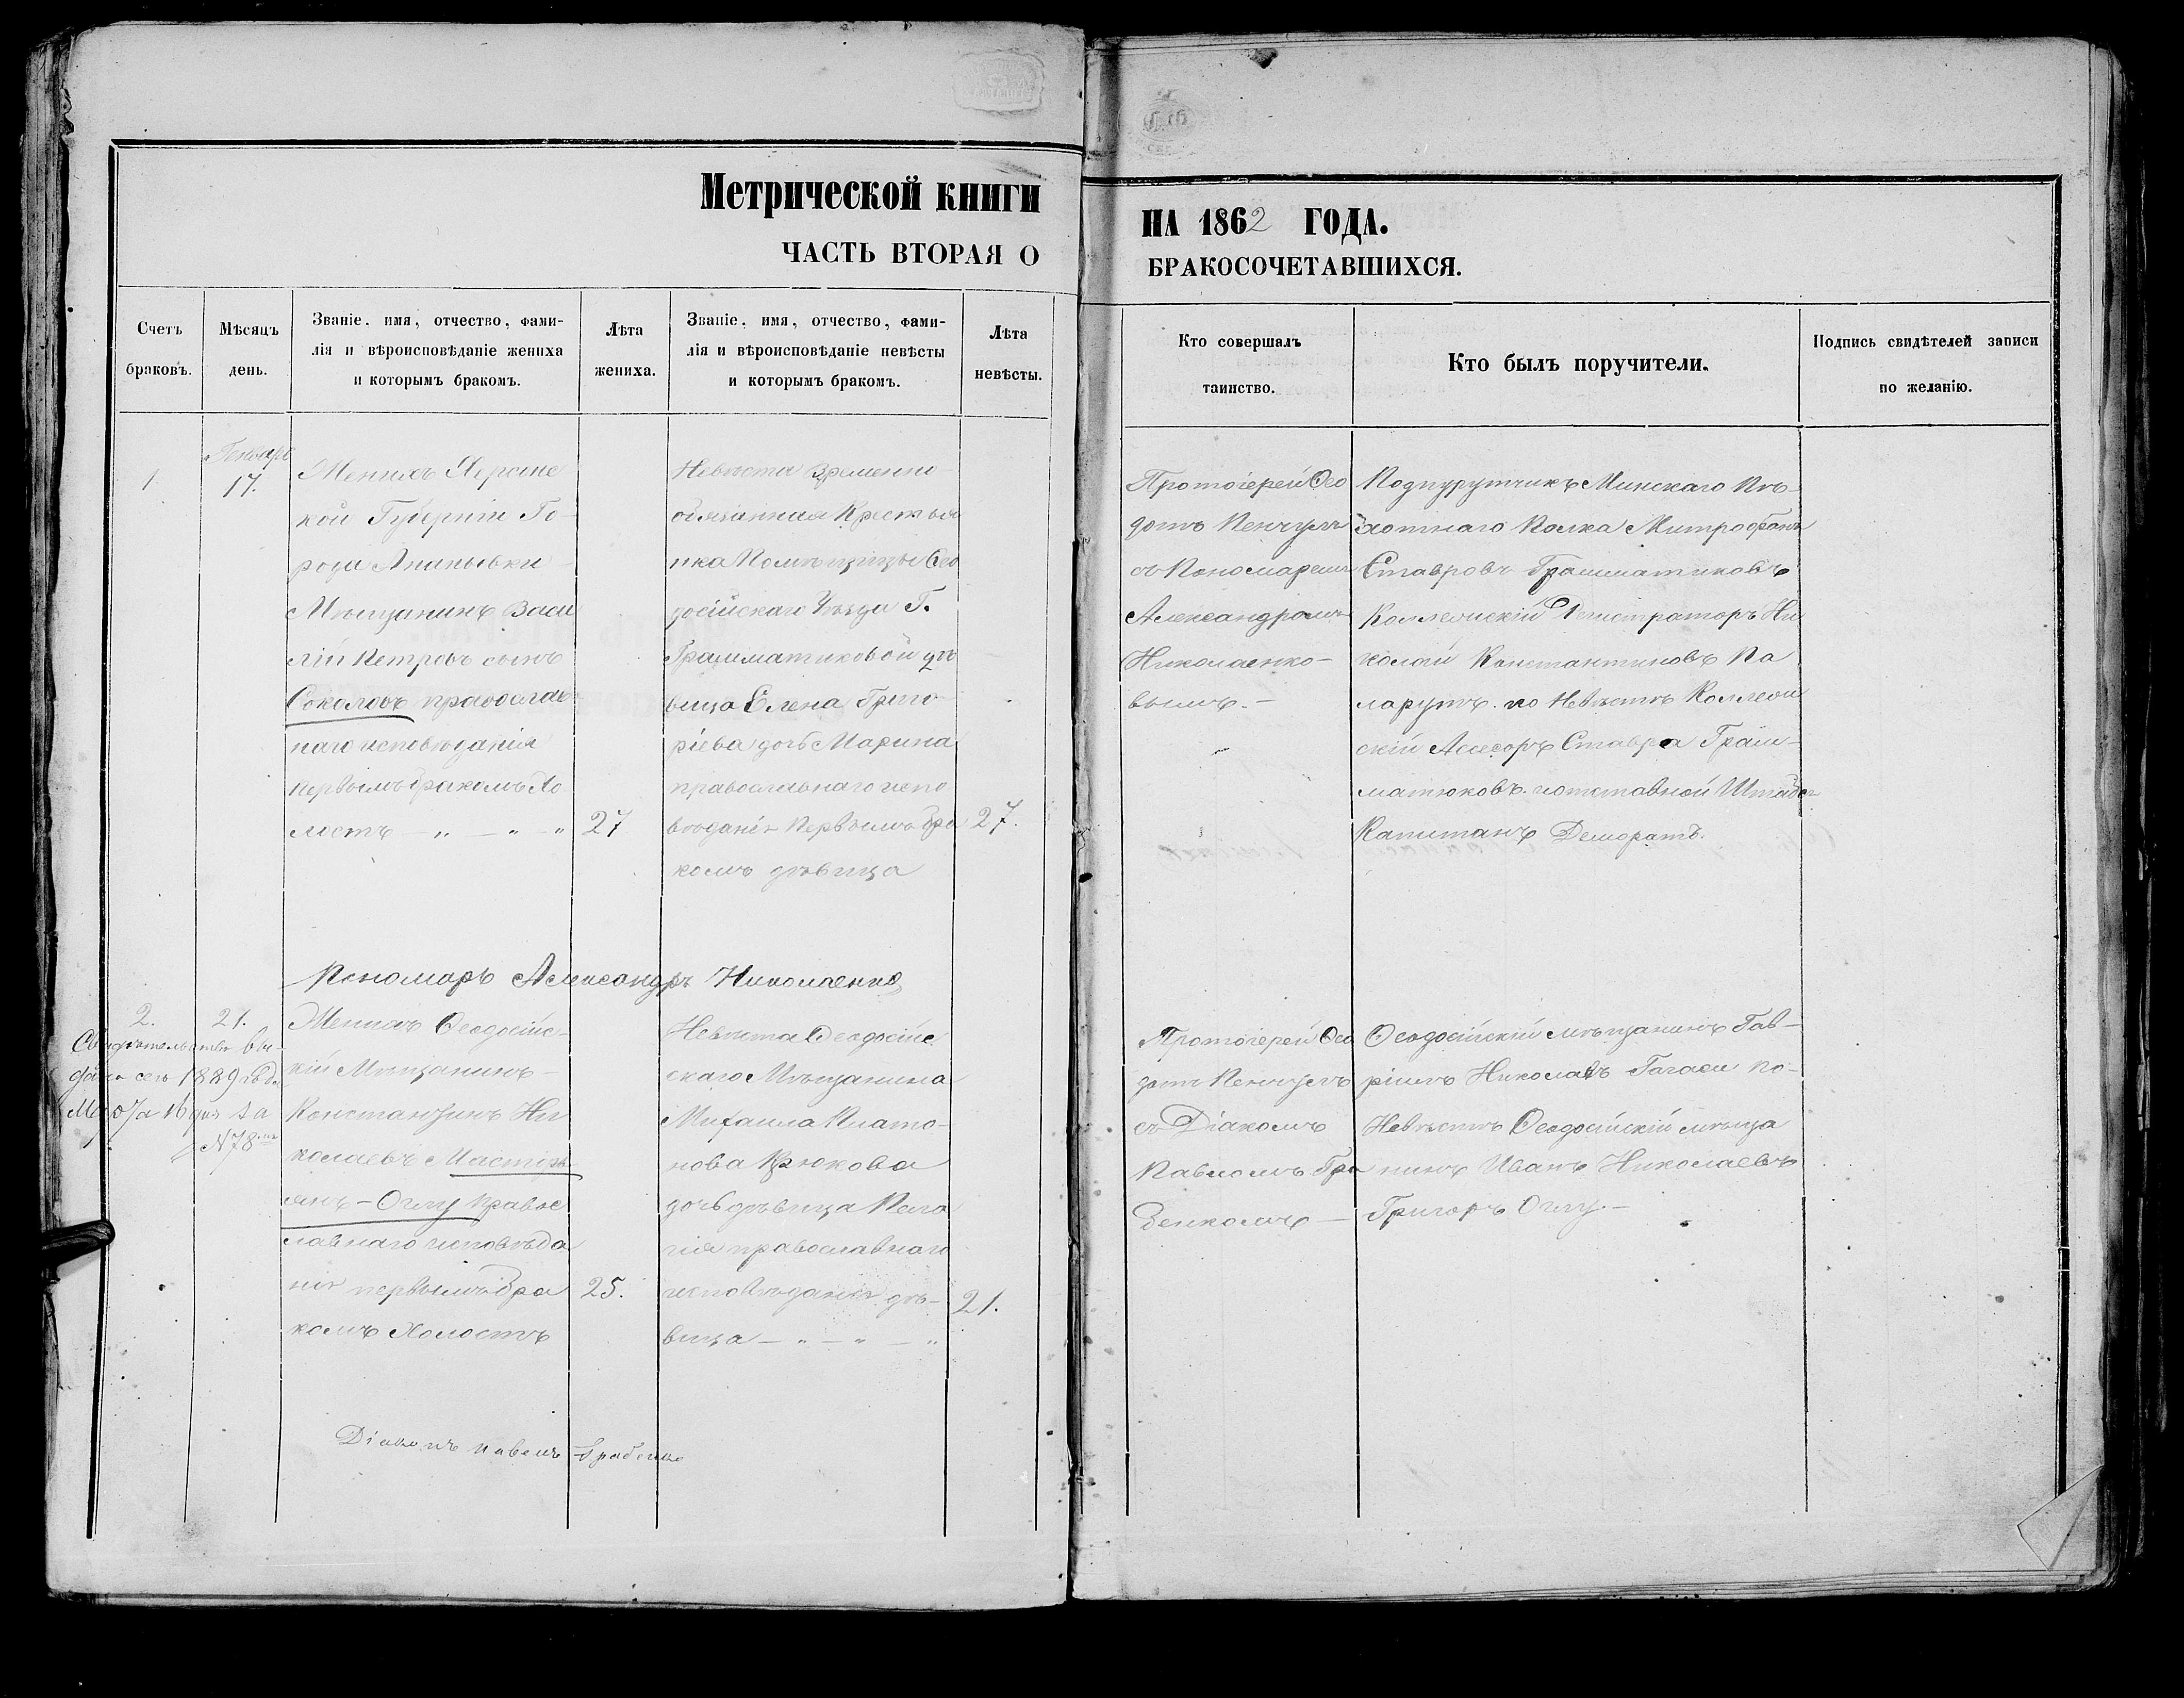 Метрической книги
ЧАСТЬ ВТОРАЯ О
НА 1862 ГОДА.
БРАКОСОЧЕТАВШИХСЯ.
Счетъ
браковъ.
Мѣсяцъ
день.
Званіе, имя, отчество, фами-
лія и вѣроисповѣданіе жениха
и которымъ бракомъ.
Лѣта
жениха.
Званіе, имя, отчество, фами-
лія и вѣроисповѣданіе невѣсты
и которымъ бракомъ.
Лѣта
невѣсты.
Кто совершалъ
таинство.
Кто былъ поручители.
Подпись свидѣтелей записи
по желанію.
1
Генваря
17.
Женихъ Херсонс
кой Губерніи Го-
рода Ананьевки
Мѣщанинъ Васи
лій Петровъ сынъ
Соколовъ православ
наго исповѣданія
первымъ бракомъ Хо
лостъ — „ — „ — „
27
Невѣста Временно
обязанная Крестья
нка Помѣщицы Ѳео
досійскаго Уѣзда Г.
Грамматиковой дѣ
вица Елена Григо
ріева дочь Марина
православнаго испо
вѣданія Первымъ бра
комъ дѣвица
27.
Протоіерей Ѳео
дотъ Пенчулъ
съ Пономаремъ
Александромъ
Николаенко-
вымъ. —
Подпурутчикъ Минскаго Пѣ-
хотнаго Полка Митрофанъ
Ставровъ Грамматиковъ
Коллежскій Регистраторъ Ни
колай Константиновъ Па
ларутъ. по Невѣстѣ Коллеж
скій Асесоръ Ставра Грам-
матиковъ. и отставной Штабсъ
Капитанъ Деморатъ.
Пономарь Александръ Николаенко
2.
21.
Свидѣтельство вы-
дано сего 1889 года
Марта 16 дня за
№78
Женихъ Ѳеодосійс-
кій Мѣщанинъ —
Константинъ Ни
колаевъ Мастіръ
янъ-Оглу правос
лавнаго исповѣда
нія первымъ бра
комъ Холостъ
25.
Невѣста Ѳеодосійс
скаго Мѣщанина
Михаила Плато-
нова Крюкова
дочь дѣвица Пела
гія православнаго
исповѣданія дѣ-
вица — „ — „ — „
21.
Протоіерей Ѳео
дотъ Пенчулъ
съ Діакомъ
Павломъ Гра
бенкомъ —
Ѳеодосійскій мѣщанинъ Гав-
ріилъ Николаевъ Гагаси по-
Невѣстѣ Ѳеодосійскій мѣща
нинъ Иванъ Николаевъ
Григоръ Оглу. —
Діаконъ Павелъ Грабенко